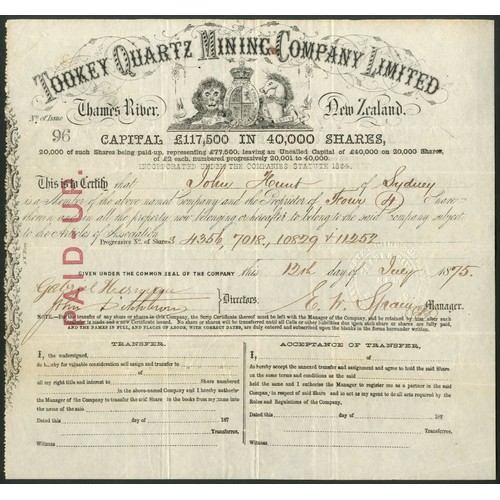 TOOKEY QUARTZ MINING COMPANY LIMITED
Thames River, New Zealand.
No. of Issue
96
CAPITAL £117,500 IN 40,000 SHARES,
20,000 of such Shares being paid-up, representing £77,500, leaving an Uncalled Capital of £40,000 on 20,000 Shares,
of £2 each, numbered progressively 20,001 to 40,000.
INCORPORATED UNDER THE COMPANIES STATUTE 1864.
This is to Certify that John of Sydney
is a Member of the above named Company and the Proprietor of Four (4) Shares
therein and in all the property now belonging or hereafter to belong to the said company subject
to the Articles of Association
Progressive No. of Shares 4356, 7018, 10829 & 11252
PAID UP.
GIVEN UNDER THE COMMON SEAL OF THE COMPANY this 12th day of July 1875.
Gabriel
John
Directors.
E. W. Manager.
NOTE.—For Transfer of Shares in this Company, the Scrip Certificate thereof must be left with the Manager of the Company, and be retained by him after such
and a new Certificate issued. No Shares or Share to be transferred until all Calls or other Liabilities due upon such share or shares are fully paid,
and the NAMES IN FULL, AND PLACES OF ABODE, WITH CORRECT DATES, are duly entered and subscribed upon the blanks in the forms hereunder written.
TRANSFER.
I, the undersigned,
do hereby for valuable consideration sell assign and transfer to
all my right title and interest to Share numbered
in the above-named Company and hereby authorise
the Manager of the Company to transfer the said Share in the books from my name into
the name of the said
Dated this day of 187
Transferror.
Witness
ACCEPTANCE OF TRANSFER.
I,
do hereby accept the annexed transfer and assignment and agree to hold the said Share
on the same terms and conditions as the said
held the same and I authorise the Manager to register me as a partner in the said
Company, in respect of said Share and to act as my agent to do all acts required by the
Rules and Regulations of the Company.
Dated this day of 187
Transferree.
Witness